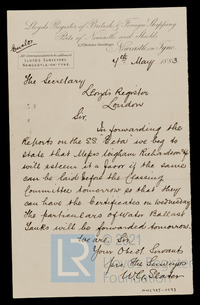 Lloyds Register of British & Foreign Shipping
Ports of Newcastle and Shields
Newcastle on Tyne
LLOYD'S SURVEYORS
NEWCASTLE-ON-TYNE
4th May 1883
The Secretary
Lloyds Register
London
Sir,
In forwarding the
Reports on the S.S. I beg to
state that Messrs Wigham Richardson &
will esteem it a favor if the same
can be laid before the Classing
Committee tomorrow so that they
can have the Certificates on Wednesday.
The particulars of Water Ballast
Tanks will be forwarded tomorrow.
We are Sir
Your Obedt Servants
The Surveyors
Lloyd's
Register
Foundation
2021